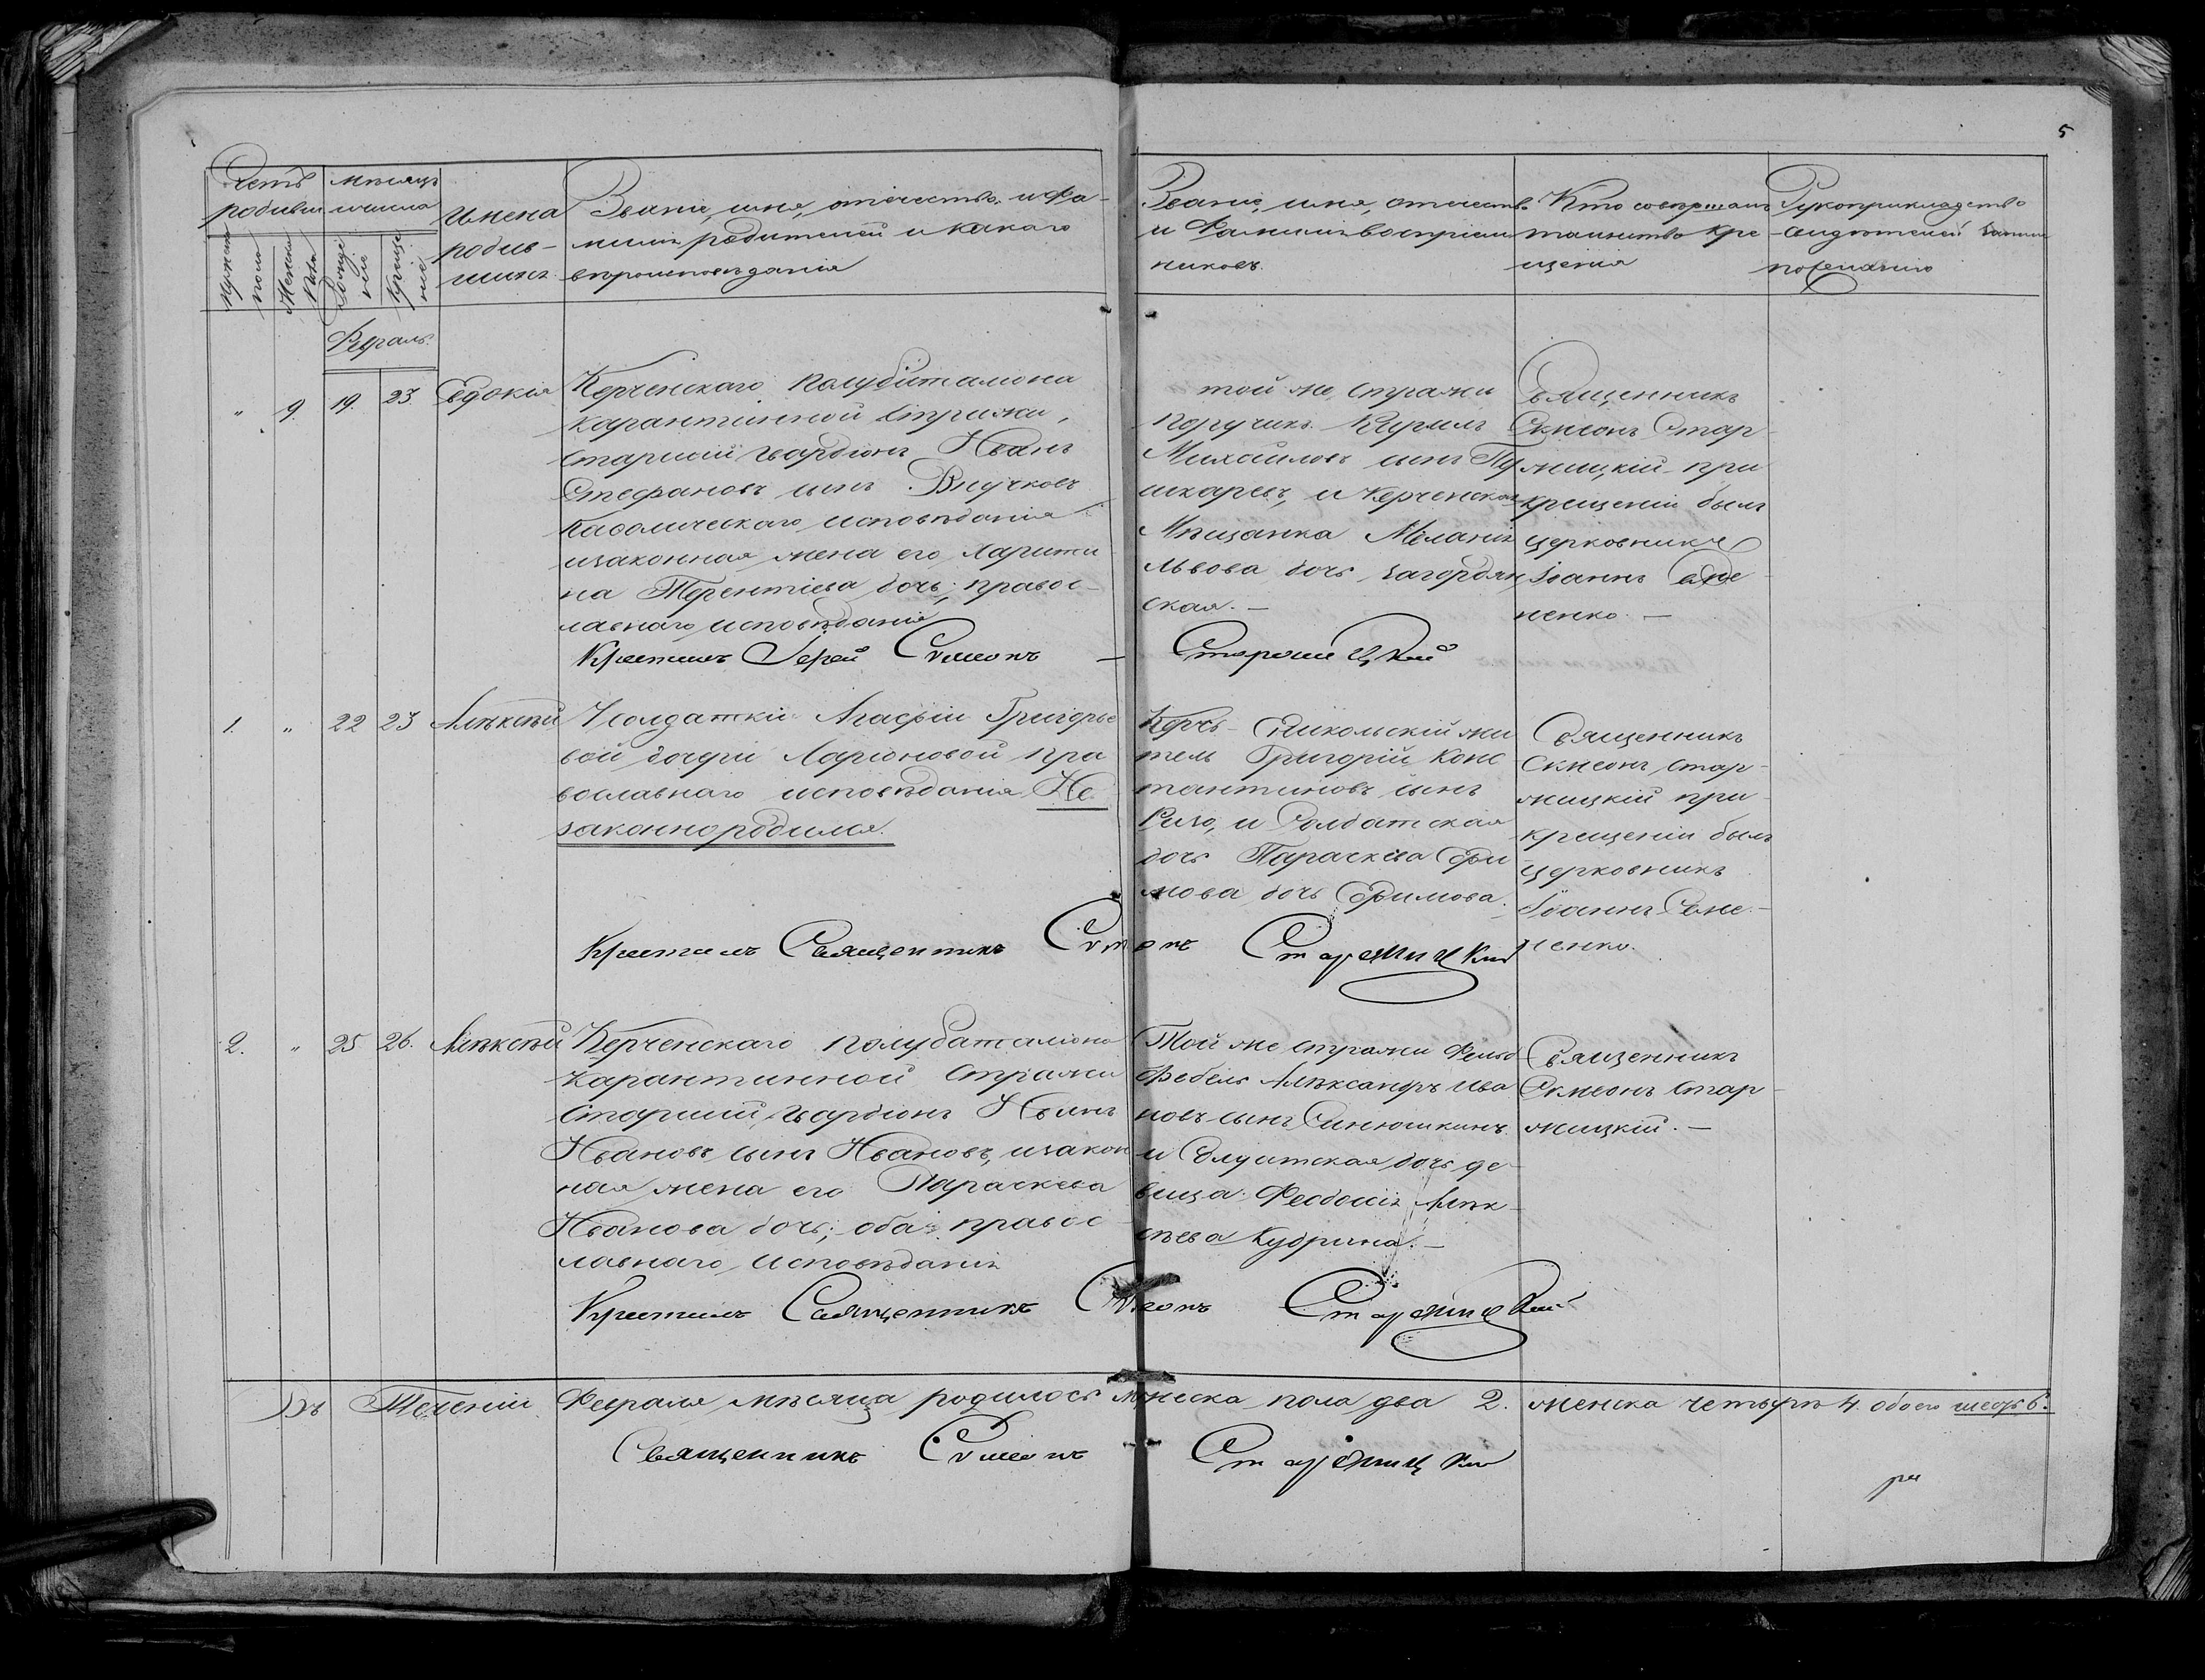 5
Счетъ родивш
Мѣсяцъ и число
Мужеска пола
Женска пола
Рождение
Крещение
Имена родившихъ
Званіе, имя, отечество, и Фамилія родителей и какаго вѣроисповѣданія
Званіе, имя, отечество и Фамилія воспріемниковъ.
Кто совершалъ таинство крещенія
Рукоприкладство свидѣтелей записи по желанію
Февраль.
" 9. 19. 23. Евдокія
Керченскаго полубаталиона
карантинной Стражи,
старшій гвардіонъ Иванъ
Стефановъ сынъ Внучковъ
Каѳолическаго исповѣданія
изаконная жена его Харити
на Терентіева дочь, правос-
лавнаго исповѣданія
той же стражи
поручикъ Кирилъ
Михайловъ сынъ Пу
шкаревъ, и Керченская
Мѣщанка Меланія
Львова дочь Загородян
ская. —
Священникъ
Симеонъ Стар-
жицкій при
крещеніи былъ
церковникъ
Іоаннъ
ненко. —
Крестилъ Іерей Симеонъ — Старжицкій
1. " 22 23 Алѣксѣй
У солдатки Агафіи Григорье
вой дочери Ларіоновой пра
вославнаго исповѣданія Не
законнородился.
Керчь-Еникольскій жи
тель Григорій Конс
тантиновъ сынъ
Ризо, и Солдатская
дочь Параскева Ефи
мова дочь Ефимова.
Священникъ
Симеонъ Стар-
жицкій при
крещеніи былъ
церковникъ
Іоаннъ
ненко.
Крестилъ Священникъ Симеонъ Старжицкій
2. " 25. 26. Алѣксѣй
Керченскаго полубаталіона
карантинной Стражи
Старшій гвардіонъ Иванъ
Ивановъ сынъ Ивановъ, изакон
ная жена его Параскева
Иванова дочь; оба правос-
лавнаго исповѣданія
Той же стражи Фельд
Фебель Алѣксандръ Ива
новъ сынъ Синюшкинъ.
и Солдатская дочь де-
вица Феодосія Алѣк-
сѣева Кудрина. —
Священникъ
Симеонъ Стар-
жицкій. —
Крестилъ Священникъ Симеонъ Старжицкій
Въ Теченіи Февраля мѣсяца родилось мужеска пола два 2. женска четыре 4. обоего шесть 6.
Священникъ Симеонъ Старжицкій